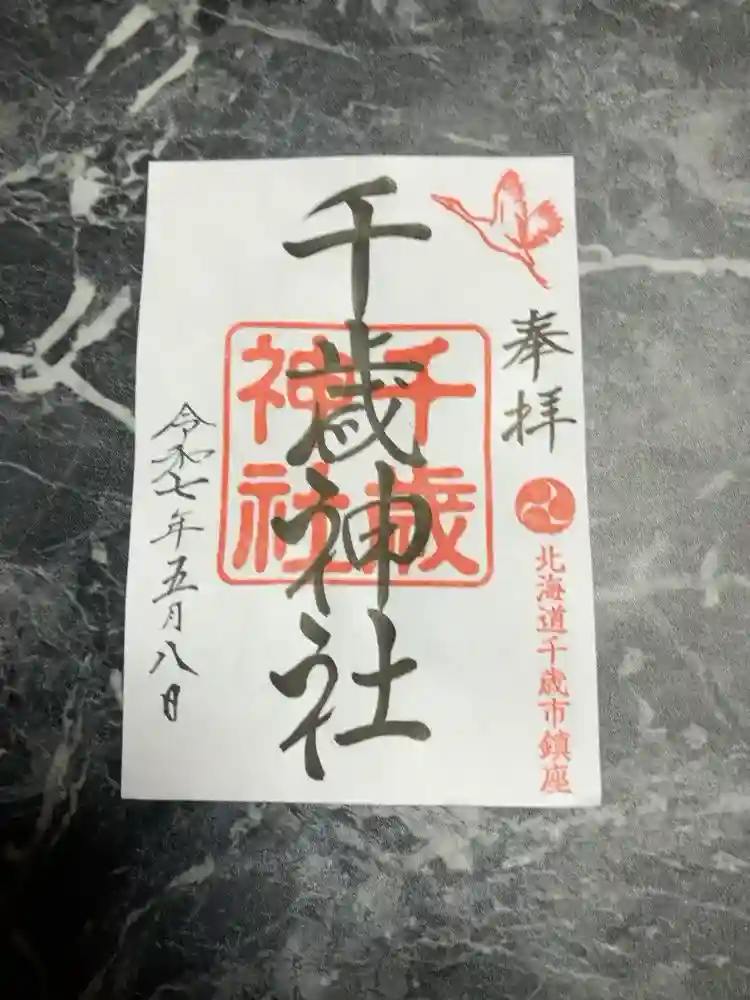 奉拝
北海道千歳市鎮座
千歳神社
千歳神社
令和七年五月八日